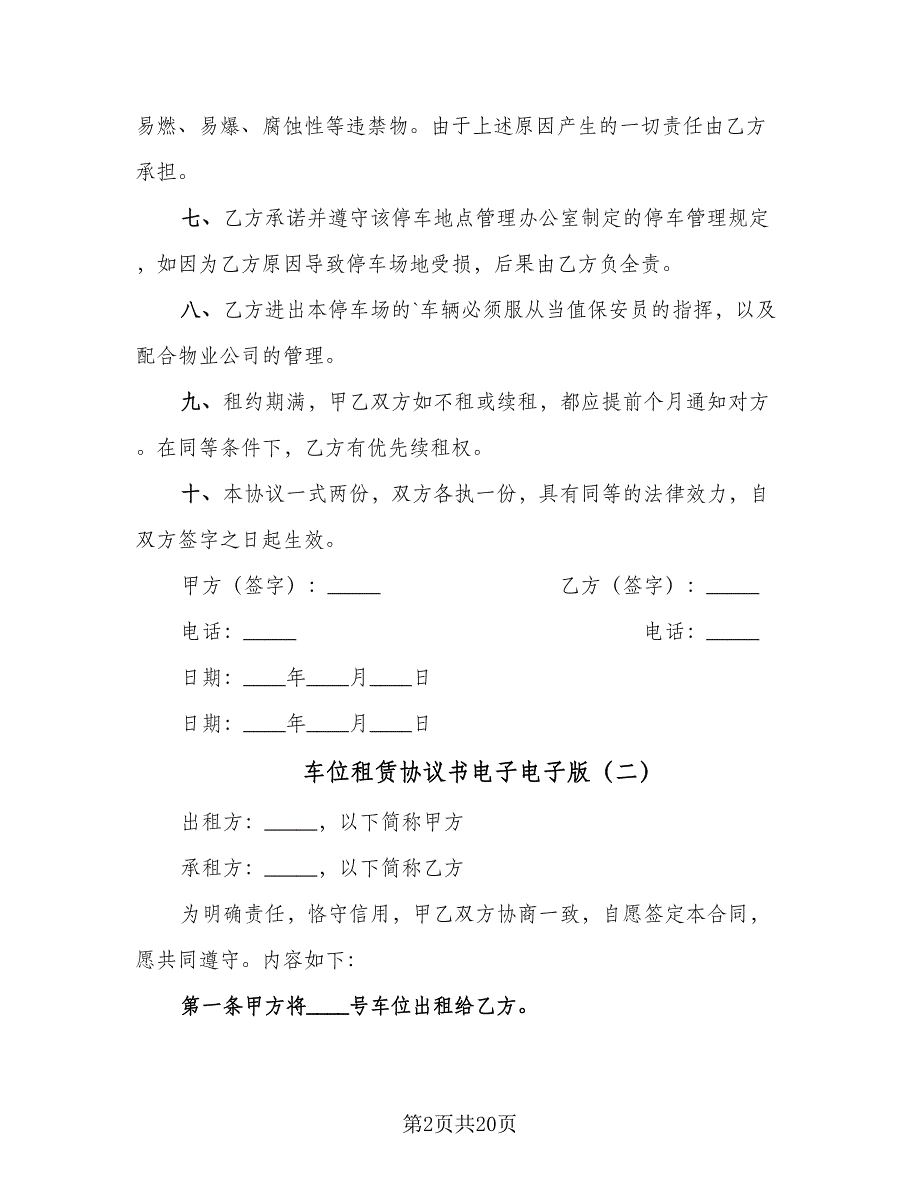 易燃、易爆、腐蚀性等违禁物。由于上述原因产生的一切责任由乙方
承担。
七、乙方承诺并遵守该停车地点管理办公室制定的停车管理规定
，如因为乙方原因导致停车场地受损，后果由乙方负全责。
八、乙方进出本停车场的`车辆必须服从当值保安员的指挥，以及
配合物业公司的管理。
九、租约期满，甲乙双方如不租或续租，都应提前个月通知对方
。在同等条件下，乙方有优先续租权。
十、本协议一式两份，双方各执一份，具有同等的法律效力，自
双方签字之日起生效。
甲方（签字）：_____ 乙方（签字）：_____
电话：_____ 电话：_____
日期：____年____月____日
日期：____年____月____日
车位租赁协议书电子电子版（二）
出租方：_____，以下简称甲方
承租方：_____，以下简称乙方
为明确责任，恪守信用，甲乙双方协商一致，自愿签定本合同，
愿共同遵守。内容如下：
第一条甲方将____号车位出租给乙方。
第2页共20页